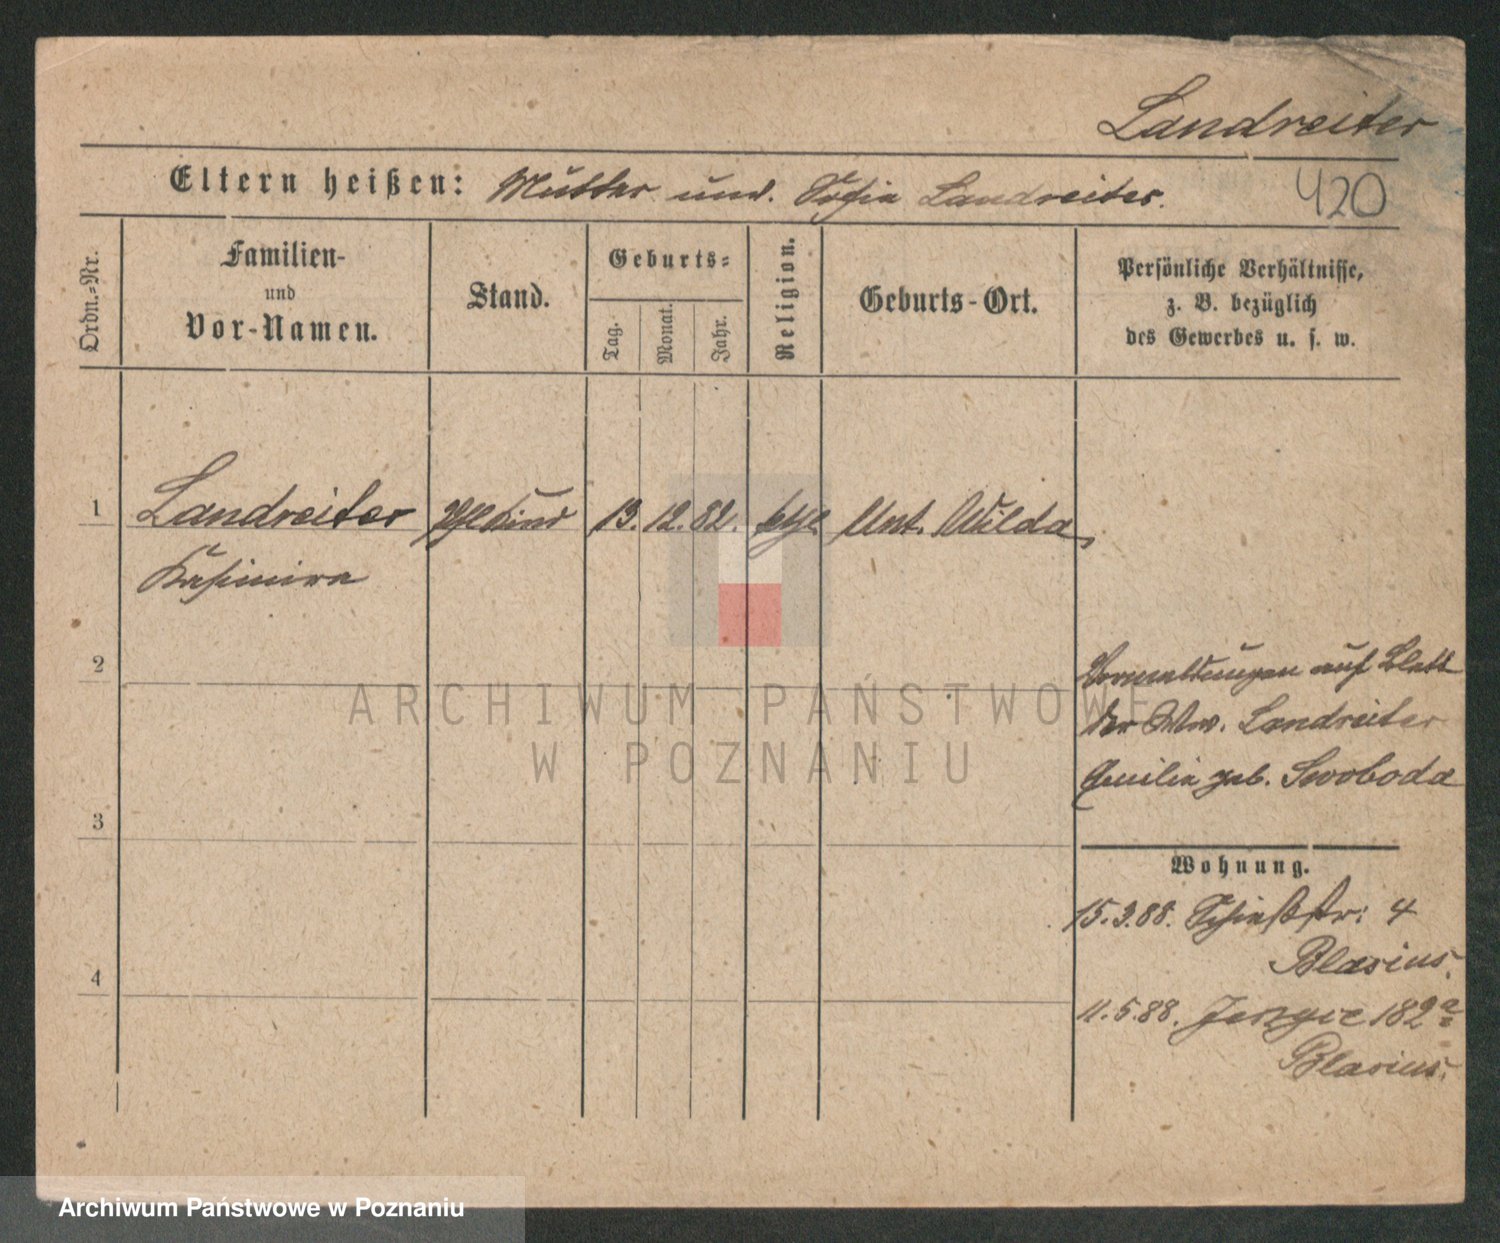 Landreiter
Eltern heißen: Mutter unv. Sofia Landreiter.
420
Ordn.-Nr.
Familien-
und
Vor-Namen.
Stand.
Geburts-
Tag.
Monat.
Jahr.
Religion.
Geburts-Ort.
Persönliche Verhältnisse,
z. B. bezüglich
des Gewerbes u. s. w.
1
Landreiter
Kasimira
13. 12. 82. ktl Unt. Wilda
2
3
4
auf Blatt
der Ww. Landreiter
Emilie geb. Swoboda
Wohnung.
15.3.88. Schießstr: 4
Blasius.
11.5.88. Jerzyce 182
Blasius.
ARCHIWUM PAŃSTWOWE
W POZNANIU
Archiwum Państwowe w Poznaniu